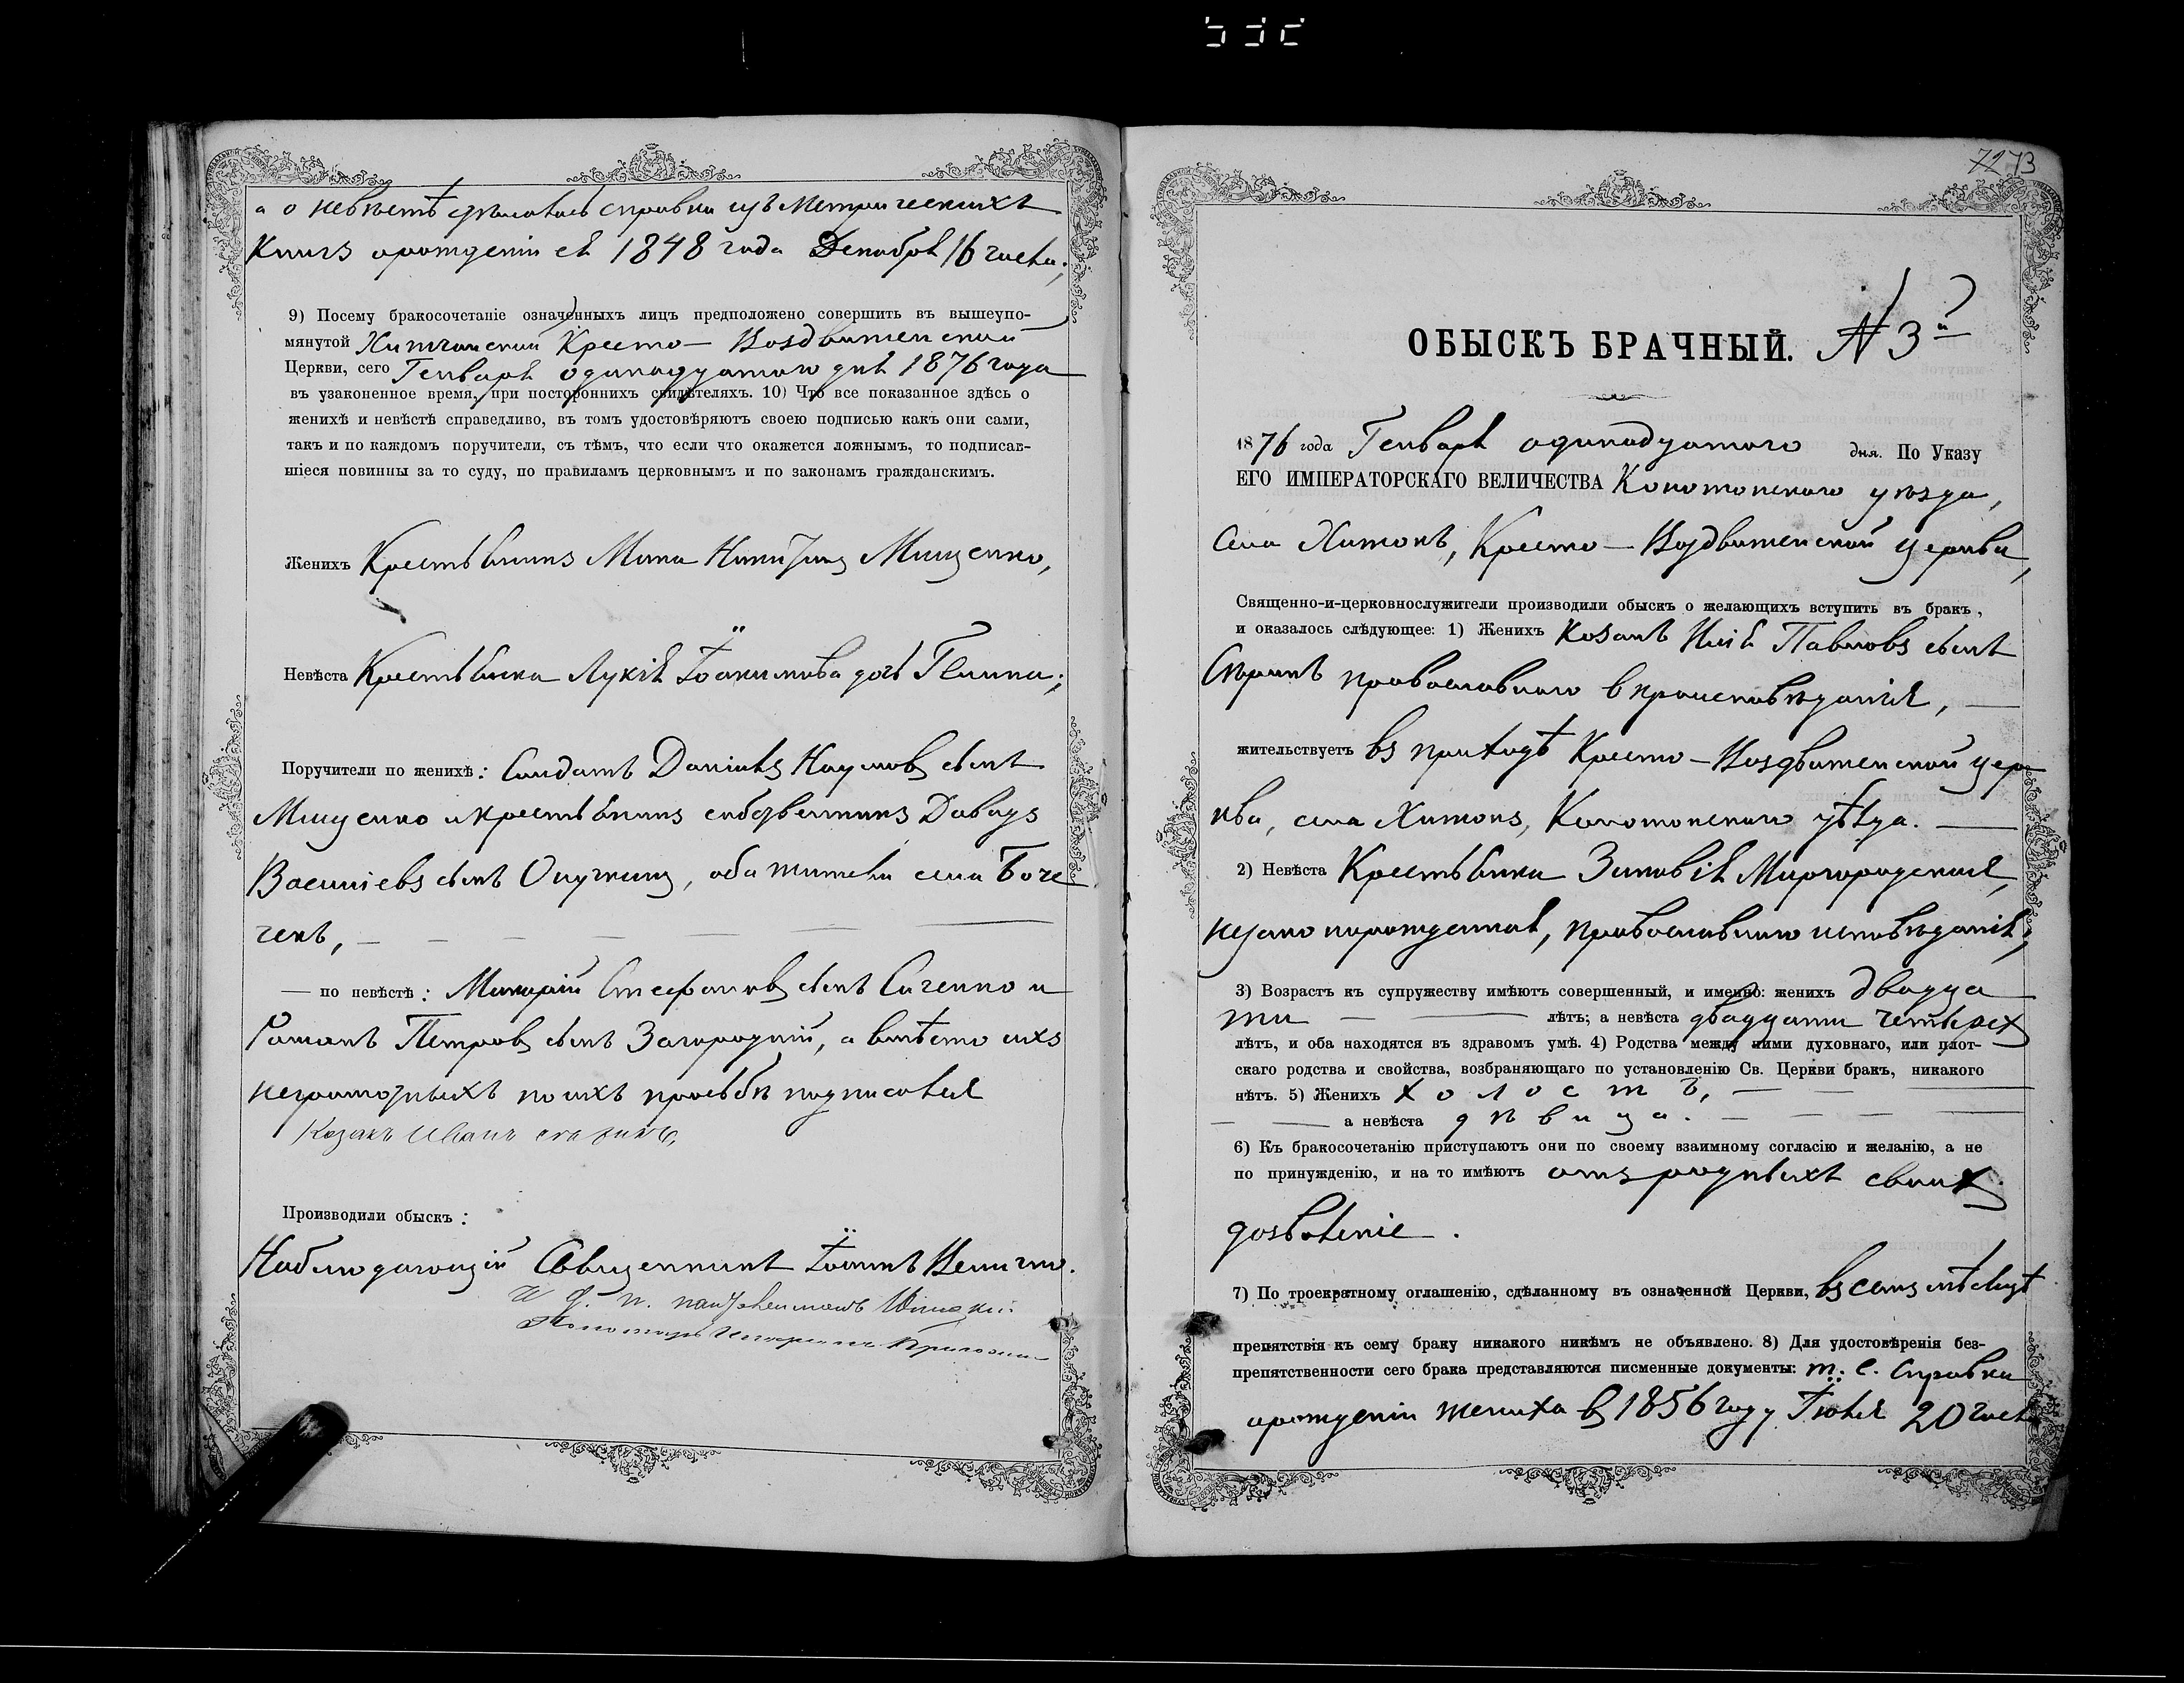 а о невѣстѣ сдѣлалась справка изъ Метрическихъ
Книгъ орожденіи ея 1848 года Декабря 16 числа;
9) Посему бракосочетаніе означенныхъ лицъ предположено совершить въ вышеупо-
мянутой Хижчанской Кресто-Воздвиженской
Церкви, сего Генваря одинадцатого дня 1876 года
въ узаконенное время, при постороннихъ свидѣтеляхъ. 10) Что все показанное здѣсь о
женихѣ и невѣстѣ справедливо, въ томъ удостовѣряютъ своею подписью какъ они сами,
такъ и по каждомъ поручители, съ тѣмъ, что если что окажется ложнымъ, то подписав-
шіеся повинны за то суду, по правиламъ церковнымъ и по законамъ гражданскимъ.
Женихъ Крестьянинъ Мина Никитинъ Мищенко,
Невѣста Крестьянка Лукія Іоакимова дочь
Поручители по женихѣ: Солдатъ Даніилъ Наумовъ сынъ
Мищенко и крестьянинъ собственникъ Давидъ
Василіевъ сынъ, оба жители села Боче
чекъ,
— по невѣстѣ: Макарій Стефановъ сынъ Сиченко и
Романъ Петровъ сынъ Загородній, а вмѣсто ихъ
неграмотныхъ по ихъ прозьбѣ подписался
Козакъ Иванъ
Производили обыскъ:
Наблюдающій Священникъ Іоаннъ
И. д. п.
Пономарь
532
72 73
ОБЫСКЪ БРАЧНЫЙ. № 3й
1876 года Генваря одинадцатого дня. По Указу
ЕГО ИМПЕРАТОРСКАГО ВЕЛИЧЕСТВА Конотопского уѣзда,
Села Хижокъ, Кресто-Воздвиженской церкви,
Священно-и-церковнослужители производили обыскъ о желающихъ вступить въ бракъ,
и оказалось слѣдующее: 1) Женихъ Козакъ Илія Павловъ сынъ
православного вѣроисповѣданія,
жительствуетъ въ приходѣ Кресто-Воздвиженской цер
кви, села Хижокъ, Конотопского уѣзда.
2) Невѣста Крестьянка Зиновія Миргородская,
незаконнорожденная, православного исповѣданія,
3) Возрастъ къ супружеству имѣютъ совершенный, и именно: женихъ двадца
ти лѣтъ; а невѣста двадцати четырехъ
лѣтъ, и оба находятся въ здравомъ умѣ. 4) Родства между ними духовнаго, или плот-
скаго родства и свойства, возбраняющаго по установленію Св. Церкви бракъ, никакого
нѣтъ. 5) Женихъ холостъ,
а невѣста дѣвица.
6) Къ бракосочетанію приступаютъ они по своему взаимному согласію и желанію, а не
по принужденію, и на то имѣютъ отъ родныхъ своихъ
дозволеніе.
7) По троекратному оглашенію, сдѣланному въ означенной Церкви, въ семъ мѣсяцѣ
препятствія къ сему браку никакого никѣмъ не объявлено. 8) Для удостовѣренія без-
препятственности сего брака представляются писменные документы: т: е. справка
орожденіи жениха въ 1856 году Іюля 20 числа